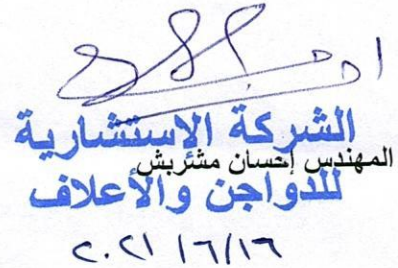 الشركة الإستشارية
المهندس إحسان مشربش
للدواجن والأعلاف
٢٠٢١/٦/١٦